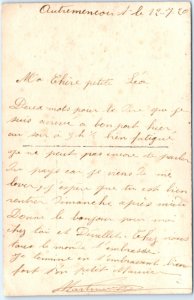 le 12-7-20
Ma Chère petite Léa
Deux mots pour te dire que je
suis arrivé à bon port hier
au soir à 9 h ½ bien fatigué
je ne peut pas encore te parler
du pays car je viens de me
lever, j'espère que tu est bien
rentrée Dimanche après midi
Donne le bonjour pour moi
chez toi et chez nous
tout le monde t'embrasse.
Je termine en t'embrassant bien
fort ton petit Maurice